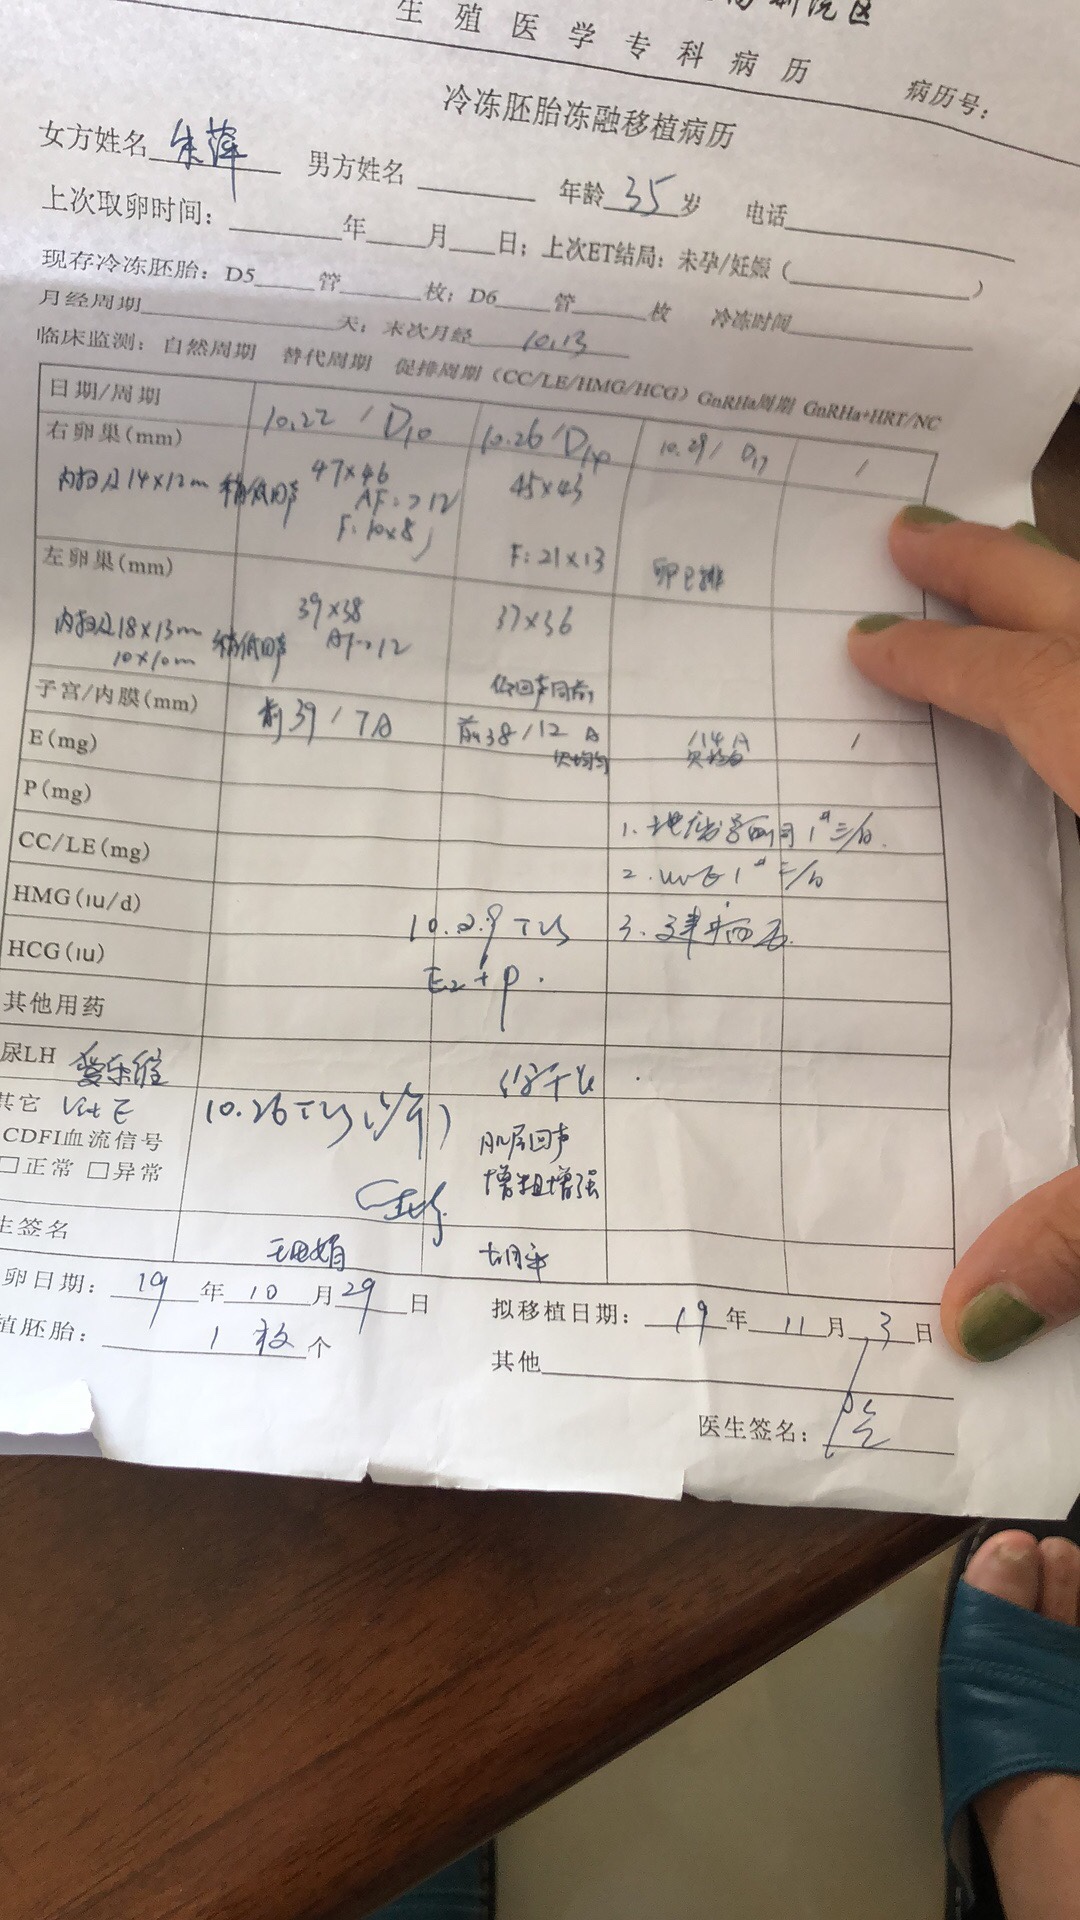 生殖医学专科病历
病历号：
冷冻胚胎冻融移植病历
女方姓名 朱萍 男方姓名 年龄 35 岁 电话
上次取卵时间： 年 月 日；上次ET结局：未孕/妊娠（ ）
现存冷冻胚胎：D5 管 枚；D6 管 枚 冷冻时间
月经周期 天；末次月经 10.13
临床监测：自然周期 替代周期 促排周期（CC/LE/HMG/HCG）GnRHa周期 GnRHa+HRT/NC
日期/周期 10.22 / D10 10.26 / D14 10.29 / D17 /
右卵巢(mm) 47×46 45×43
内扫及14×12m 稍低回声 AF:>12
F:10×8 F:21×13 卵已排
左卵巢(mm) 39×38 37×36
内扫及18×13m 稍低回声 AF>12
10×10m 低回声同前
子宫/内膜(mm) 前39 / 7A 前38 / 12 A /14 A /
欠均匀 欠均匀
E(mg)
P(mg)
1.地屈孕酮 1# 三/日
CC/LE(mg) 2. 1# 三/日
HMG(iu/d) 10.29 TVS 3.
HCG(iu) E2+P.
其他用药
尿LH 爱乐维
其它 Vit E 10.26 TVS
CDFI血流信号 肌层回声
□正常 □异常 增粗增强
生签名
卵日期： 19 年 10 月 29 日 拟移植日期： 19 年 11 月 3 日
植胚胎： 1 枚 个 其他
医生签名：